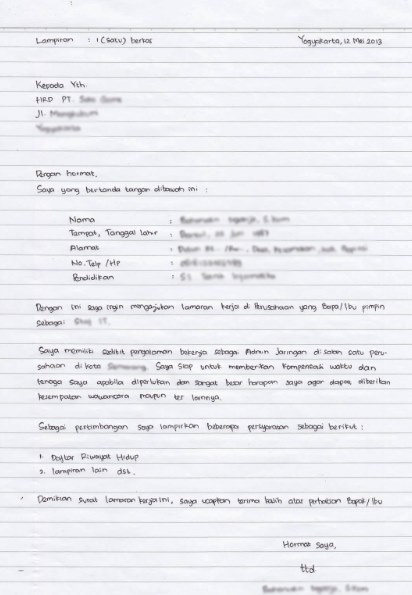 Lampiran : 1 (satu) berkas
Yogyakarta, 12 Mei 2013
Kepada Yth.
HRD PT.
Jl.
Dengan hormat,
Saya yang bertanda tangan dibawah ini :
Nama :
Tempat, Tanggal Lahir :
Alamat :
No. Telp / HP :
Pendidikan :
Dengan ini saya ingin mengajukan lamaran kerja di Perusahaan yang Bapa/Ibu pimpin
sebagai
Saya memiliki sedikit pengalaman bekerja sebagai Admin Jaringan di salah satu peru-
sahaan di kota Saya siap untuk memberikan kompensasi waktu dan
tenaga saya apabila diperlukan dan sangat besar harapan saya agar dapat diberikan
kesempatan wawancara maupun tes lainnya.
Sebagai pertimbangan saya lampirkan beberapa persyaratan sebagai berikut :
1. Daftar Riwayat Hidup
2. lampiran lain dst.
Demikian surat lamaran kerja ini, saya ucapkan terima kasih atas perhatian Bapak/Ibu
Hormat Saya,
ttd